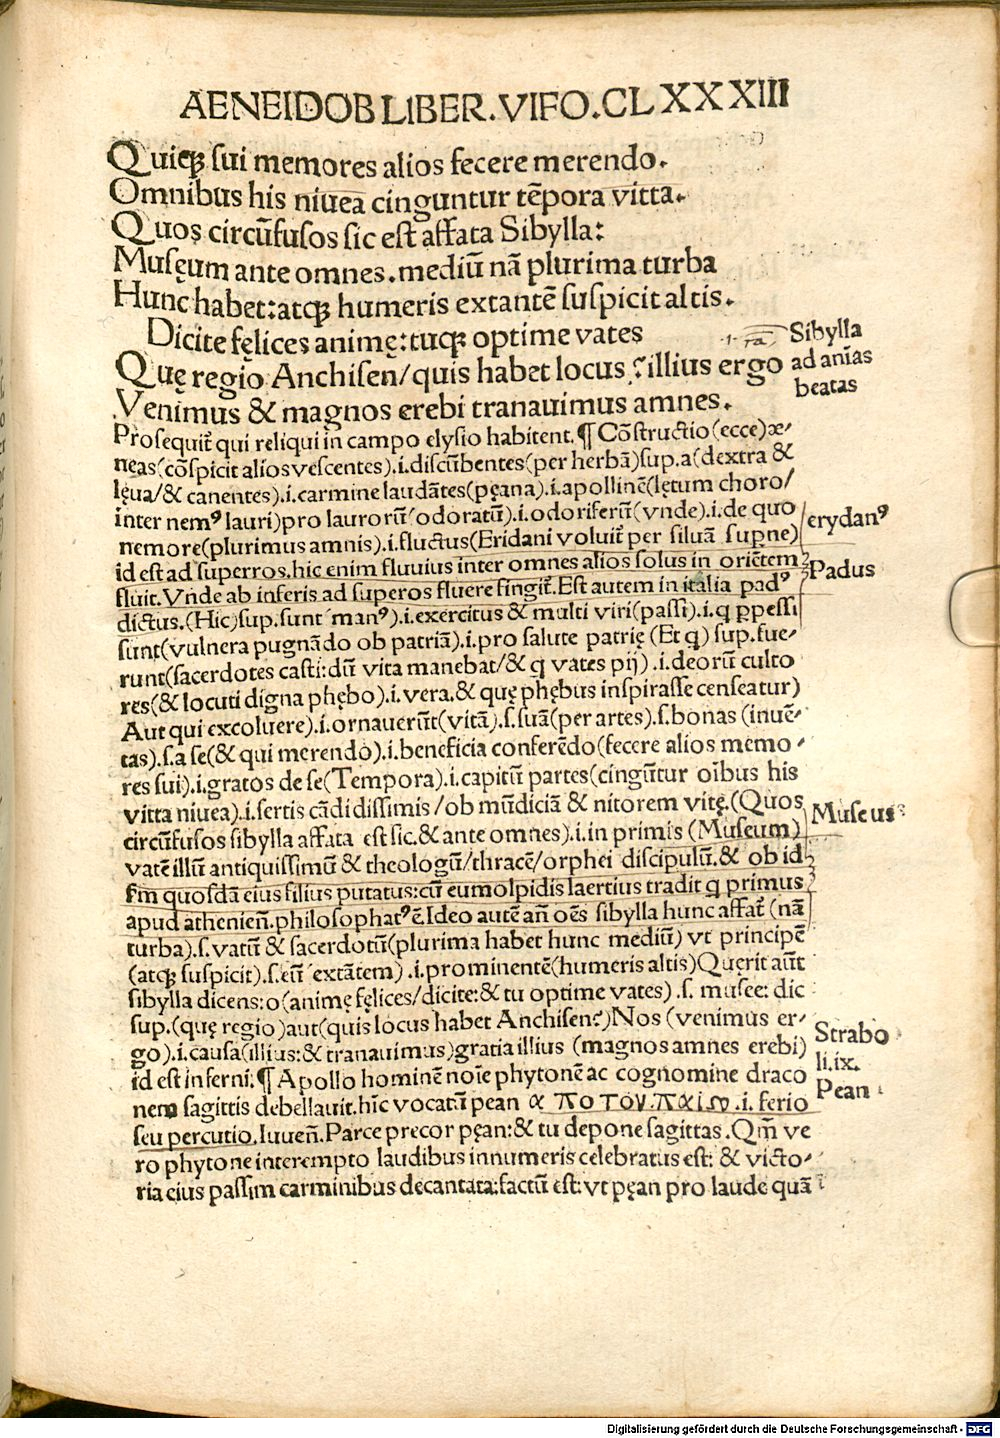 AENEIDOB LIBER. VI FO. CLXXXIII
Quiq̃ sui memores alios fecere merendo.
Omnibus his niuea cinguntur tẽpora vitta.
Quos circũfusos sic est affata Sibylla:
Musęum ante omnes. mediũ nã plurima turba
Hunc habet: atq̃ humeris extantẽ suspicit altis.
Dicite fęlices animę: tuq̃ optime vates
Quę regio Anchisen/ quis habet locus? illius ergo
Venimus & magnos erebi tranauimus amnes.
Sibylla
ad anĩas
beatas
Prosequit̃ qui reliqui in campo elysio habitent. ¶ Cõstructio (ecce) æ/
neas (cõspicit alios vescentes) .i. discũbentes (per herbã) sup. a (dextra &
lęua/ & canentes) .i. carmine laudãtes (pęana) .i. apollinẽ (lętum choro/
inter nemꝰ lauri) pro laurorũ (odoratũ) .i. odoriferũ (vnde) .i. de quo
nemore (plurimus amnis) .i. fluctus (Eridani voluit̃ per siluã suꝑne)
id est ad superros. hic enim fluuius inter omnes alios solus in oriẽtem
fluit. Vnde ab inferis ad superos fluere fingit̃. Est autem in italia padꝰ
dictus. (Hic) sup. sunt (manꝰ) .i. exercitus & multi viri (passi) .i. q ꝑpessi
sunt (vulnera pugnãdo ob patriã) .i. pro salute patrię (Et q) sup. fue/
runt (sacerdotes casti: dũ vita manebat/ & q vates pij) .i. deorũ culto
res (& locuti digna phębo) .i. vera. & quę phębus inspirasse censeatur)
Aut qui excoluere) .i. ornauerũt (vitã) .s. suã (per artes) .s. bonas (inuẽ/
tas) .s. a se (& qui merendo) .i. beneficia conferẽdo (fecere alios memo/
res sui) .i. gratos de se (Tempora) .i. capitũ partes (cingũtur oĩbus his
vitta niuea) .i. sertis cãdidissimis/ ob mũdiciã & nitorem vitę. (Quos
circũfusos sibylla affata est sic. & ante omnes) .i. in primis (Museum)
vatẽ illũ antiquissimũ & theologũ/ thracẽ/ orphei discipulũ. & ob id
fm̃ quosdã eius filius putatus: cũ eumolpidis laertius tradit q primus
apud athenieñ. philosophatꝰ ẽ. Ideo autẽ añ oẽs sibylla hunc affat̃ (nã
turba) .s. vatũ & sacerdotũ (plurima habet hunc mediũ) vt principẽ
(atq̃ suspicit) .s. eũ (extãtem) .i. prominentẽ (humeris altis) Quęrit aũt
sibylla dicens: o (animę fęlices/ dicite: & tu optime vates) .s. musee: dic
sup. (quę regio) aut (quis locus habet Anchisen?) Nos (venimus er/
go) .i. causa (illius: & tranauimus) gratia illius (magnos amnes erebi)
id est inferni. ¶ Apollo hominẽ noĩe phytonẽ ac cognomine draco
nem sagittis debellauit. hĩc vocat̃ pean α πο τον. παιω .i. ferio
seu percutio. Iuueñ. Parce precor pęan: & tu depone sagittas. Qm̃ ve
ro phytone interempto laudibus innumeris celebratus est: & victo/
ria eius passim carminibus decantata: factũ est: vt pęan pro laude quã
erydanꝰ
Padus
Museus
Strabo
li. ix.
Pean
Digitalisierung gefördert durch die Deutsche Forschungsgemeinschaft - DFG